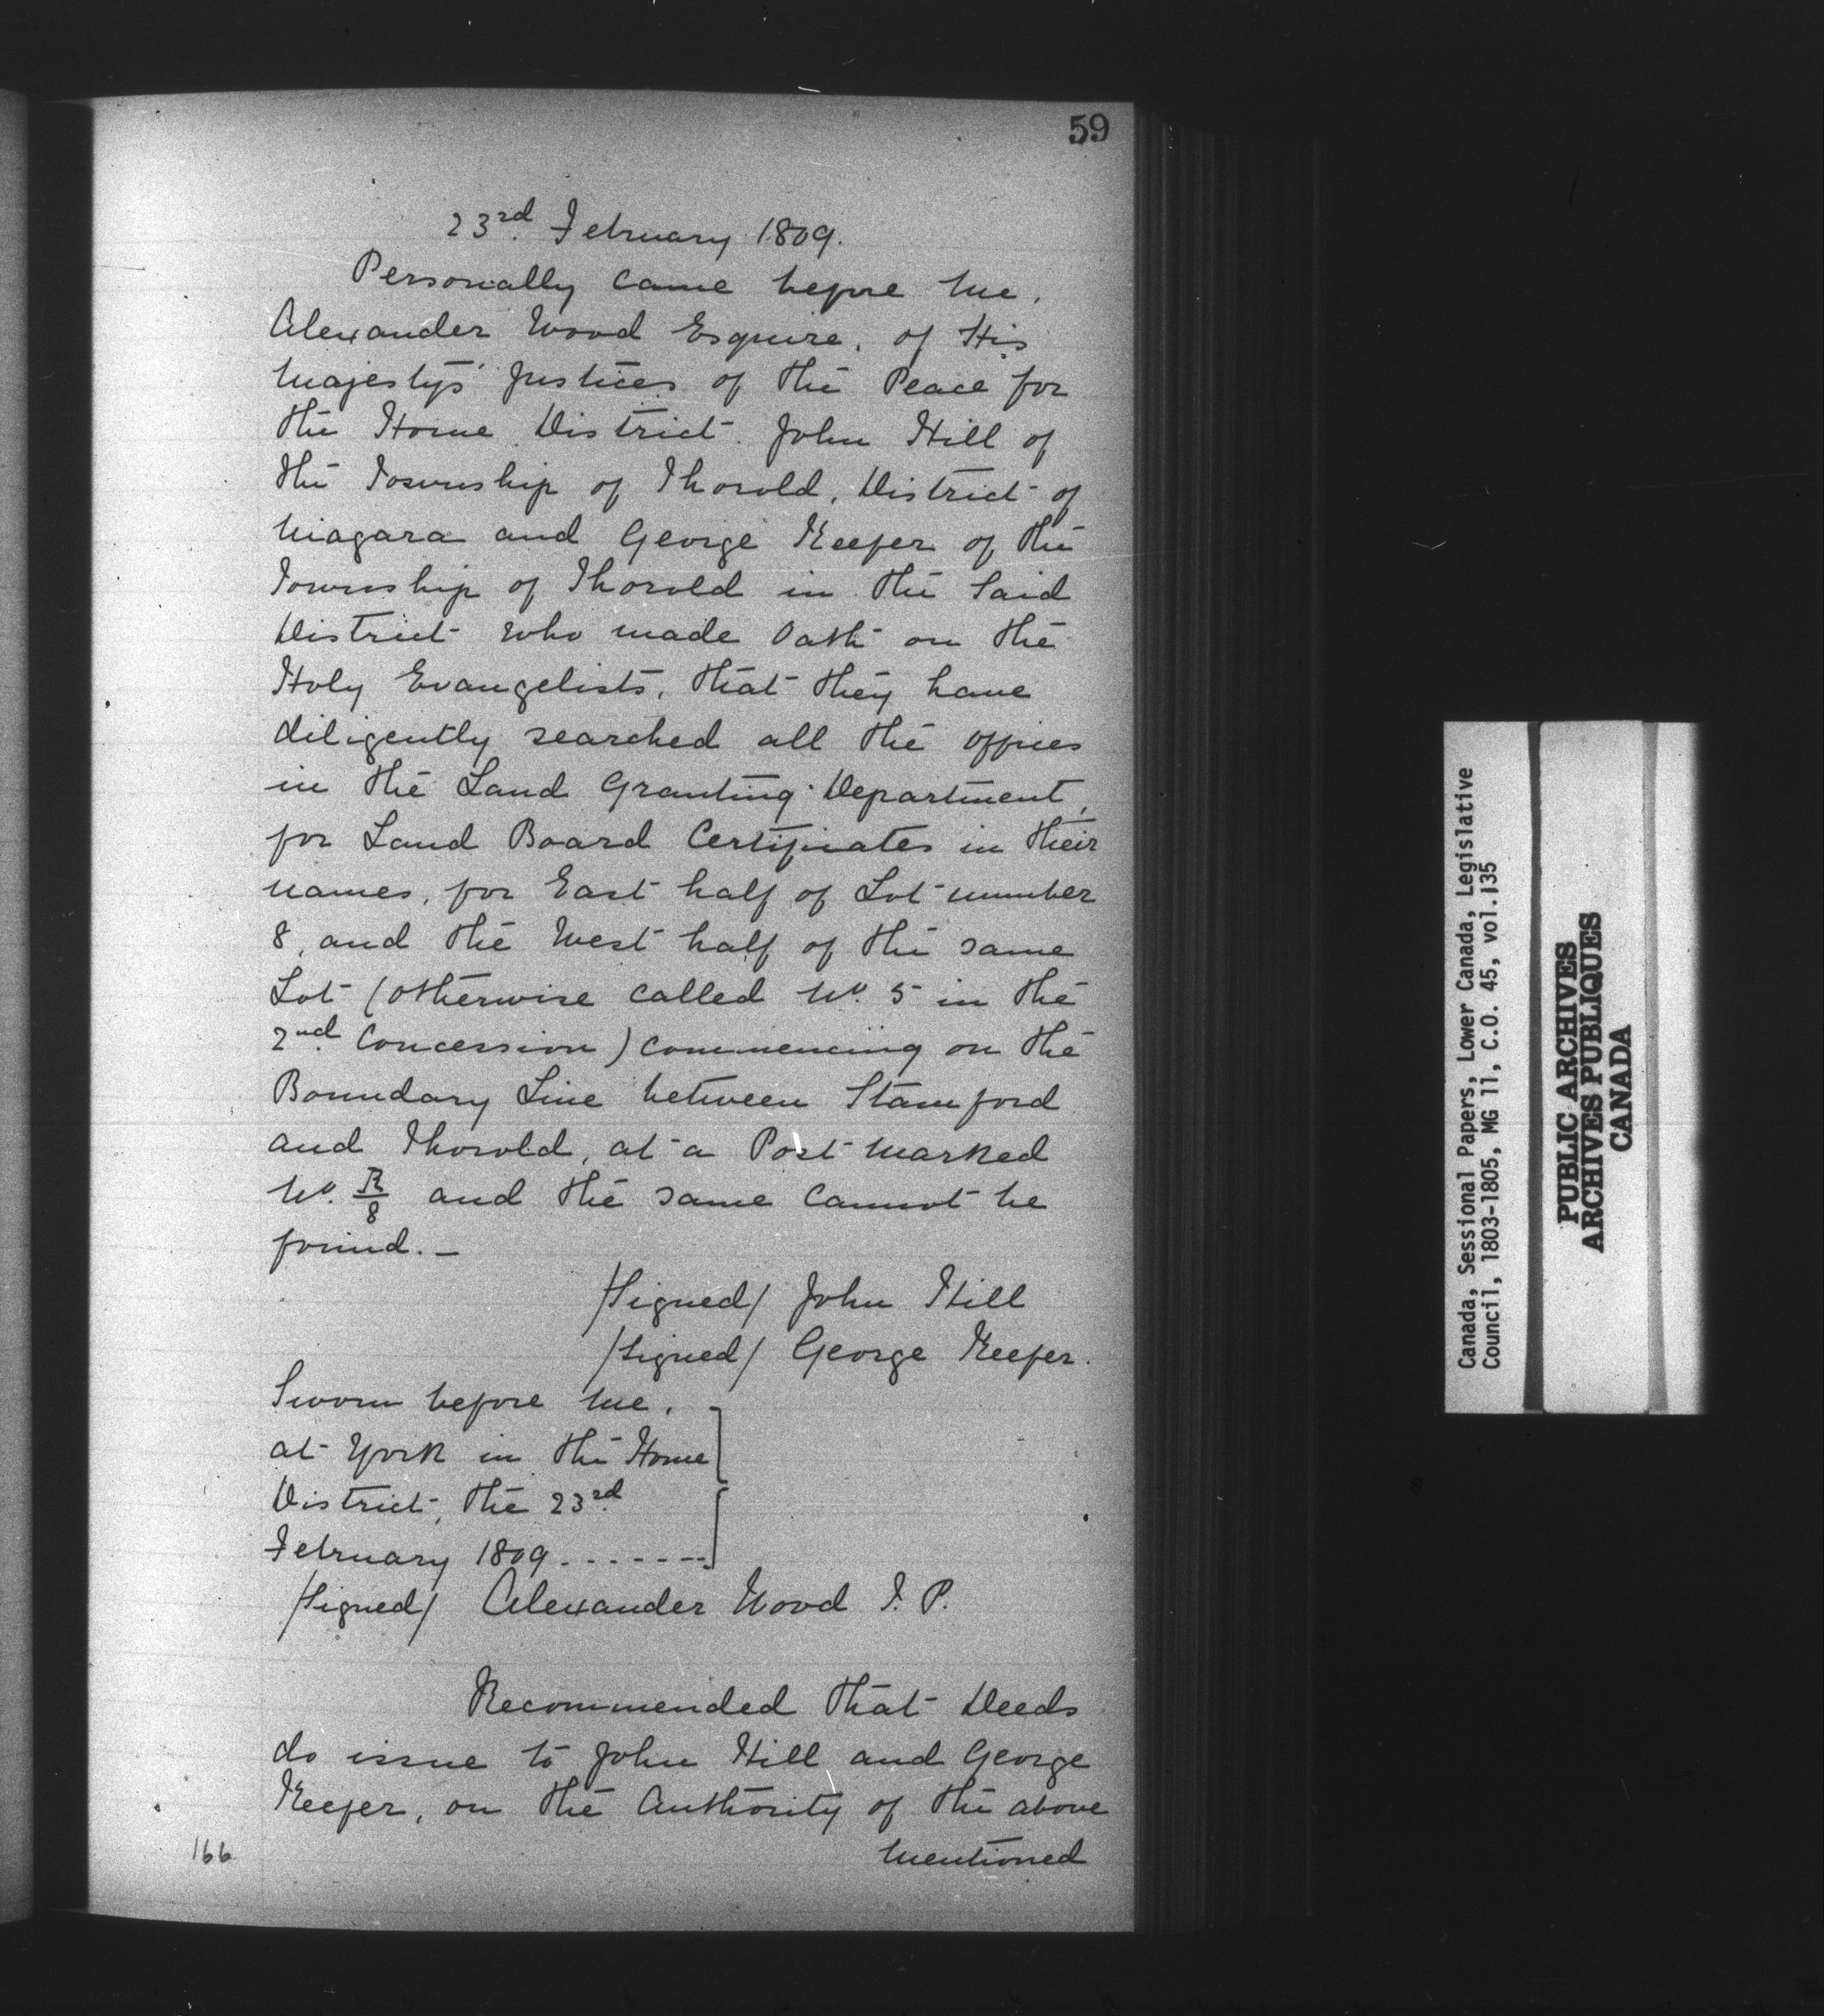 59
23rd. February 1809.
Personally came before me,
Alexander Wood Esquire, of His
Majesty's Justices of the Peace for
the Home District. John Hill of
the Township of Thorold, District of
Niagara and George Keefer of the
Township of Thorold in the said
District who made Oath on the
Holy Evangelists, that they have
diligently searched all the offices
in the Land Granting Department,
for Land Board Certificates in their
names, for East half of Lot number
8, and the West half of the same
Lot (otherwise called No. 5 in the
2nd. Concession) commencing on the
Boundary Line between Stamford
and Thorold, at a Post marked
No. R/8 and the same cannot be
found. —
/Signed/ John Hill
/Signed/ George Keefer.
Sworn before me,
at York in the Home
District, the 23rd.
February 1809.-------
/Signed/ Alexander Wood J. P.
Recommended that Deeds
do issue to John Hill and George
Keefer, on the Authority of the above
mentioned
166
Canada, Sessional Papers, Lower Canada, Legislative
Council, 1803-1805, MG 11, C.O. 45, vol.135
PUBLIC ARCHIVES
ARCHIVES PUBLIQUES
CANADA